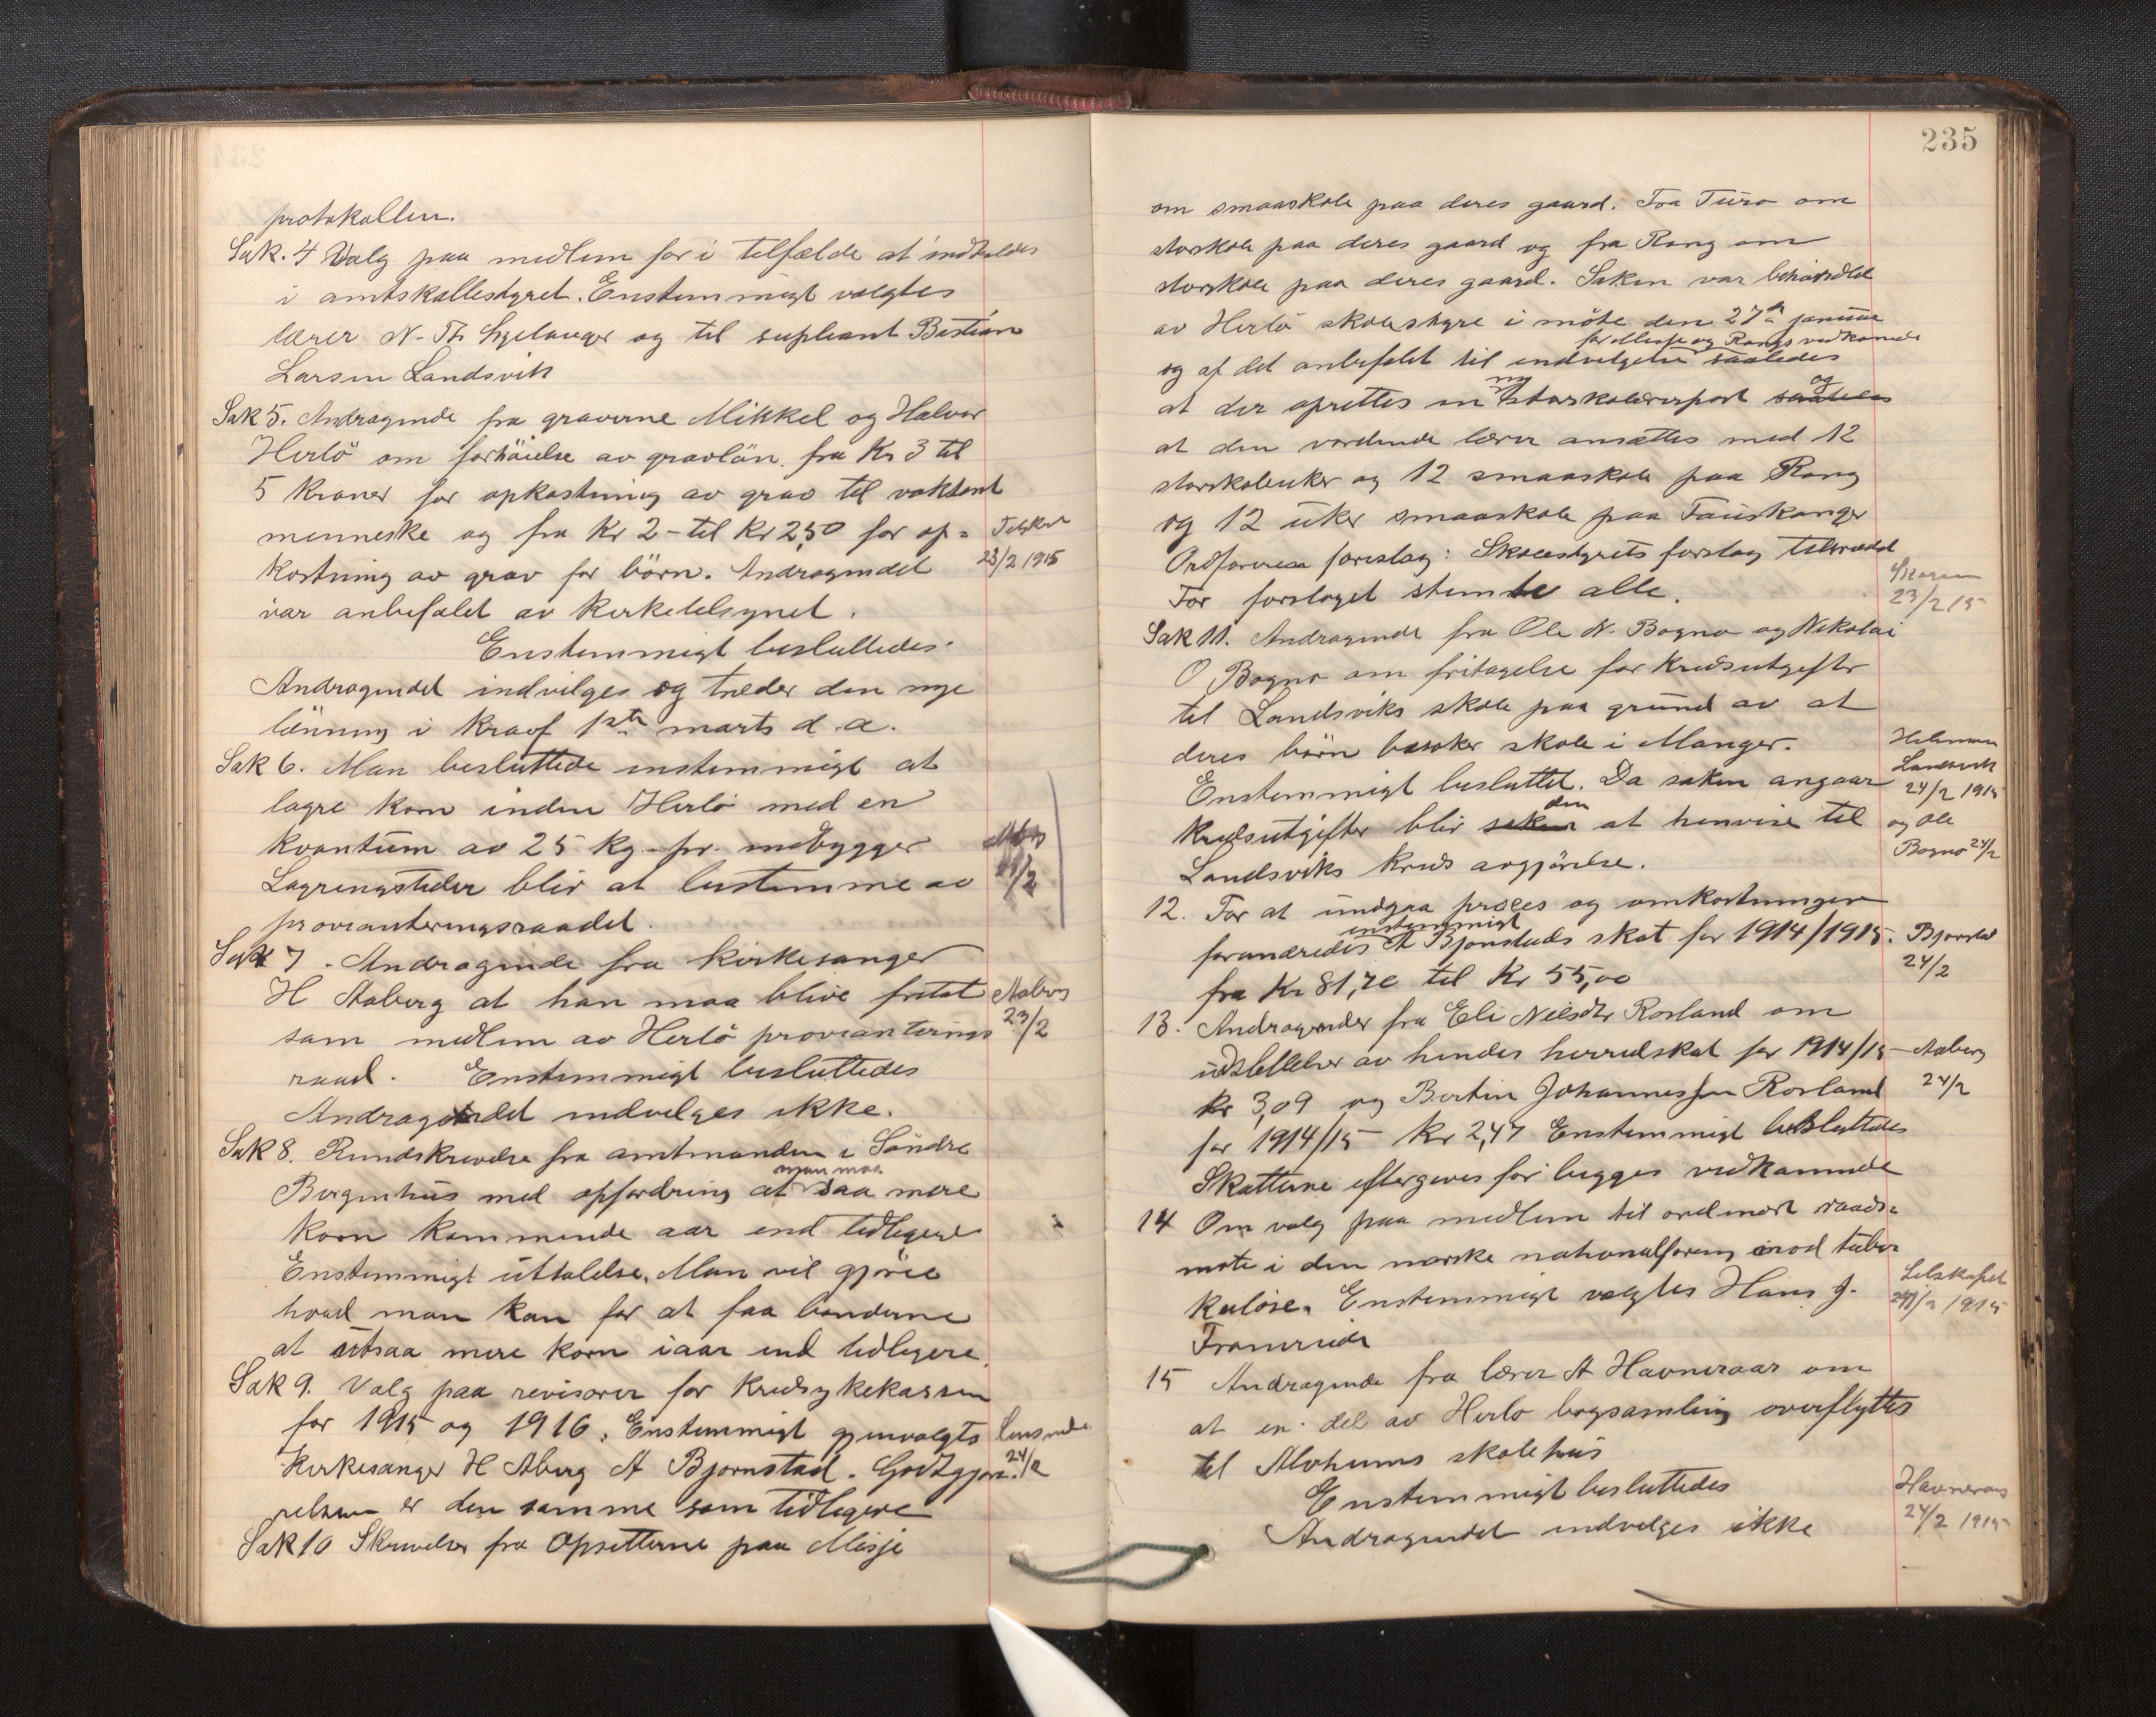 protokollen.
Sak. 4 Valg paa medlem for i tilfælde at indkaldes
i amtskattestyret. Enstemmigt valgtes
lærer N. Th. Hjelanger og til supleant Bastian
Larsen Landsvik
Sak 5. Andragende fra graverne Mikkel og Halvor
Herlö om forhöielse av gravlön fra Kr 3 til
5 kroner for opkastning av grav til voksent
menneske og fra kr 2 - til kr 2,50 for op=
kastning av grav for börn. Andragendet
var anbefalet av kirketilsynet.
Enstemmigt besluttedes.
Andragendet indvilges og træder den nye
lönning i kraft 1ste marts d. a.
Sak 6. Man besluttede enstemmigt at
lagre korn inden Herlö med en
kvantum av 25 kg. pr. indbygger
Lagringsteder blir at bestemme av
provianteringsraadet.
Sak 7. Andragende fra kirkesanger
H Aaberg at han maa blive fritat
som medlem av Herlö provianterings
raad. Enstemmigt besluttedes
Andragendet indvilges ikke.
Sak 8. Rundskrivelse fra amtmanden i Söndre
Bergenhus med opfordring at man maa saa mere
korn kommende aar end tidligere
Enstemmigt uttalelse. Man vil gjøre
hvad man kan for at faa bønderne
at utsaa mere korn iaar end tidligere.
Sak 9. Valg paa revisorer for kredssykekassen
for 1915 og 1916. Enstemmigt gjenvalgtes
kirkesanger H Aberg A Bjornstad. Godtgjø=
relsen er den samme som tidligere
Sak 10 Skrivelser fra Opsitterne paa Misje
Aaberg
23/2
24/2
23/2 1915
235
om smaaskole paa deres gaard. Fra Turo om
storskole paa deres gaard og fra Rong om
storskole paa deres gaard. Saken var behandlet
av Herlö skolestyre i möte den 27de januar
og af det anbefalet til indvilgelse for Misje og Rongs vedkomende saaledes
at der oprettes en ny storskolelærerpost og saaledes
at den vordende lærer ansættes med 12
storskoleuker og 12 smaaskole paa Rong
og 12 uker smaaskole paa Fauskanger
Ordførerens forestag: Skolestyrets forslag tiltrædes
For forslaget stemte alle.
Sak 11. Andragende fra Ole N. Bogno og Nikolai
O Bogno om fritagelse for kredsutgifter
til Landsviks skole paa grund av at
deres börn besøker skole i Manger.
Enstemmigt besluttet. Da saken angaar
kredsutgifter blir saken den at henvise til
Landsviks kreds avgjörelse.
12. For at undgaa proces og omkostninger
forandredes enstemmigt A Bjonstads skat for 1914/1915.
fra Kr 81,70 til Kr 55,00
13. Andragender fra Eli Nilsdtr Rosland om
udslettelse av hendes herredskat for 1914/15
kr 3,09 og Bertin Johannessen Rosland
for 1914/15 kr 2,47 Enstemmigt besluttedes
Skatterne eftergives for begges vedkomende
14 Om valg paa medlem til ordinært raads=
møte i den norske nationalforening mod tuber
kulose. Enstemmigt valgtes Hans J.
Fromreide
15 Andragende fra lærer A Havneraas om
at en del av Herlo bogsamling overflyttes
til Alvheims skolehus
Enstemmigt besluttedes
Andragendet indvilges ikke
23/2 15
Landsvik
24/2 1915
og Ole
Bogno 24/2
Bjonstad
24/2
Aaberg
24/2
Selskapet
24/2 1915
Havneraas
24/2 1915